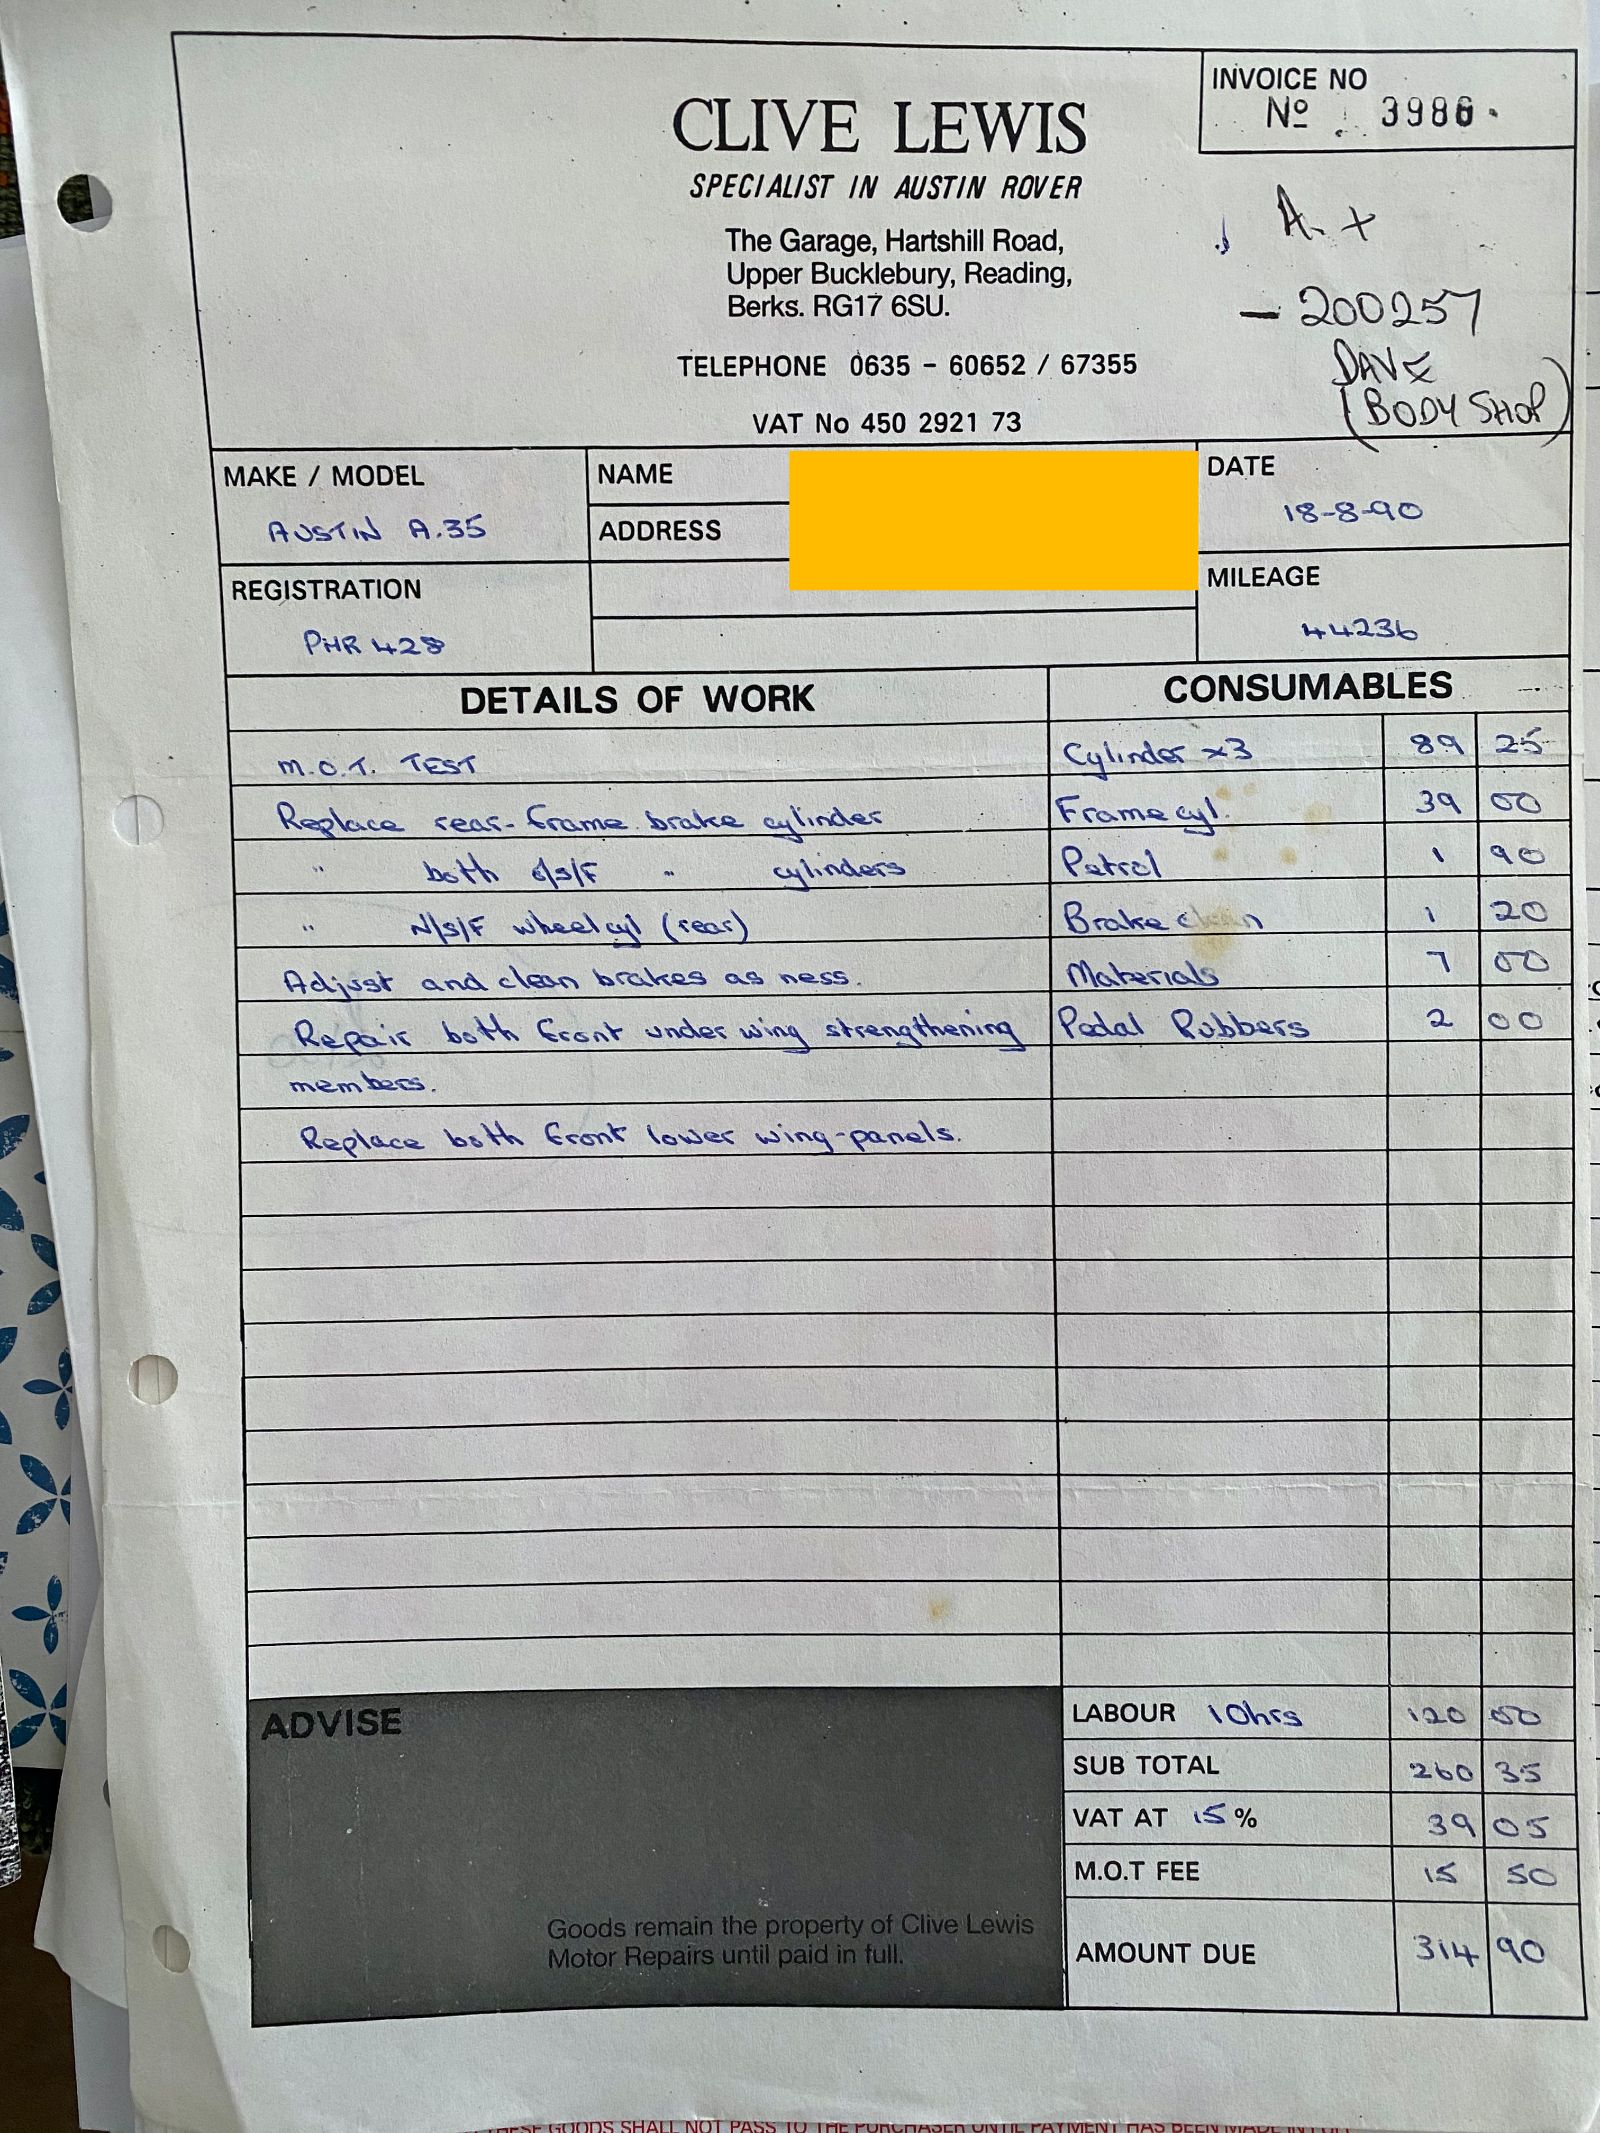 INVOICE NO
Nº 3986
CLIVE LEWIS
SPECIALIST IN AUSTIN ROVER
The Garage, Hartshill Road,
Upper Bucklebury, Reading,
Berks. RG17 6SU.
TELEPHONE 0635 - 60652 / 67355
VAT No 450 2921 73
A. +
- 200257
DAVE
(BODY SHOP)
MAKE / MODEL
AUSTIN A.35
NAME
ADDRESS
DATE
18-8-90
REGISTRATION
PHR 428
MILEAGE
44236
DETAILS OF WORK
CONSUMABLES
M.O.T. TEST
Cylinder x3 89 25
Replace rear-frame brake cylinder
Frame cyl. 39 00
" both o/s/F " cylinders
Petrol 1 90
" N/S/F wheel cyl (rear)
Brake clean 1 20
Adjust and clean brakes as ness.
Materials 7 00
Repair both front under wing strengthening
Pedal Rubbers 2 00
members.
Replace both front lower wing-panels.
ADVISE
Goods remain the property of Clive Lewis
Motor Repairs until paid in full.
LABOUR 10hrs 120 00
SUB TOTAL 260 35
VAT AT 15 % 39 05
M.O.T FEE 15 50
AMOUNT DUE 314 90
GOODS SHALL NOT PASS TO THE PURCHASER UNTIL PAYMENT HAS BEEN MADE IN